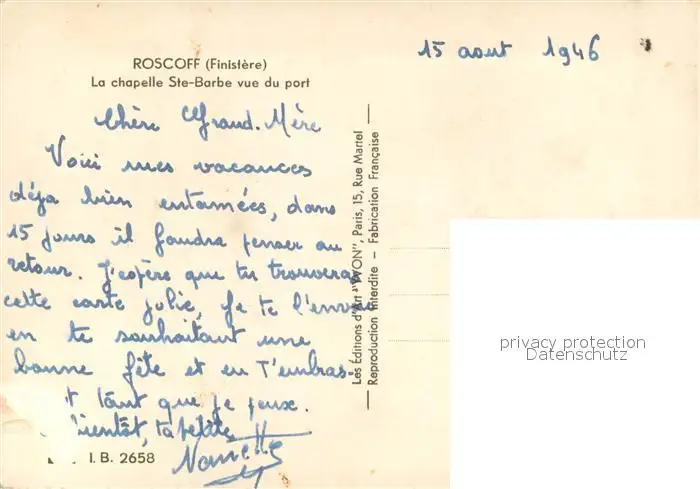 15 aout 1946
ROSCOFF (Finistère)
La chapelle Ste-Barbe vue du port
Chère Grand-Mère
Voici mes vacances
déja bien entamées, dans
15 jours il faudra penser au
retour. J'espère que tu trouveras
cette carte jolie, je te l'envoie
en te souhaitant une
bonne fête et en t'embras-
t tant que je peux.
ientôt, ta petite
Les Éditions d'Art "YVON", Paris, 15, Rue Martel
Reproduction Interdite - Fabrication Française
I.B. 2658
privacy protection
Datenschutz